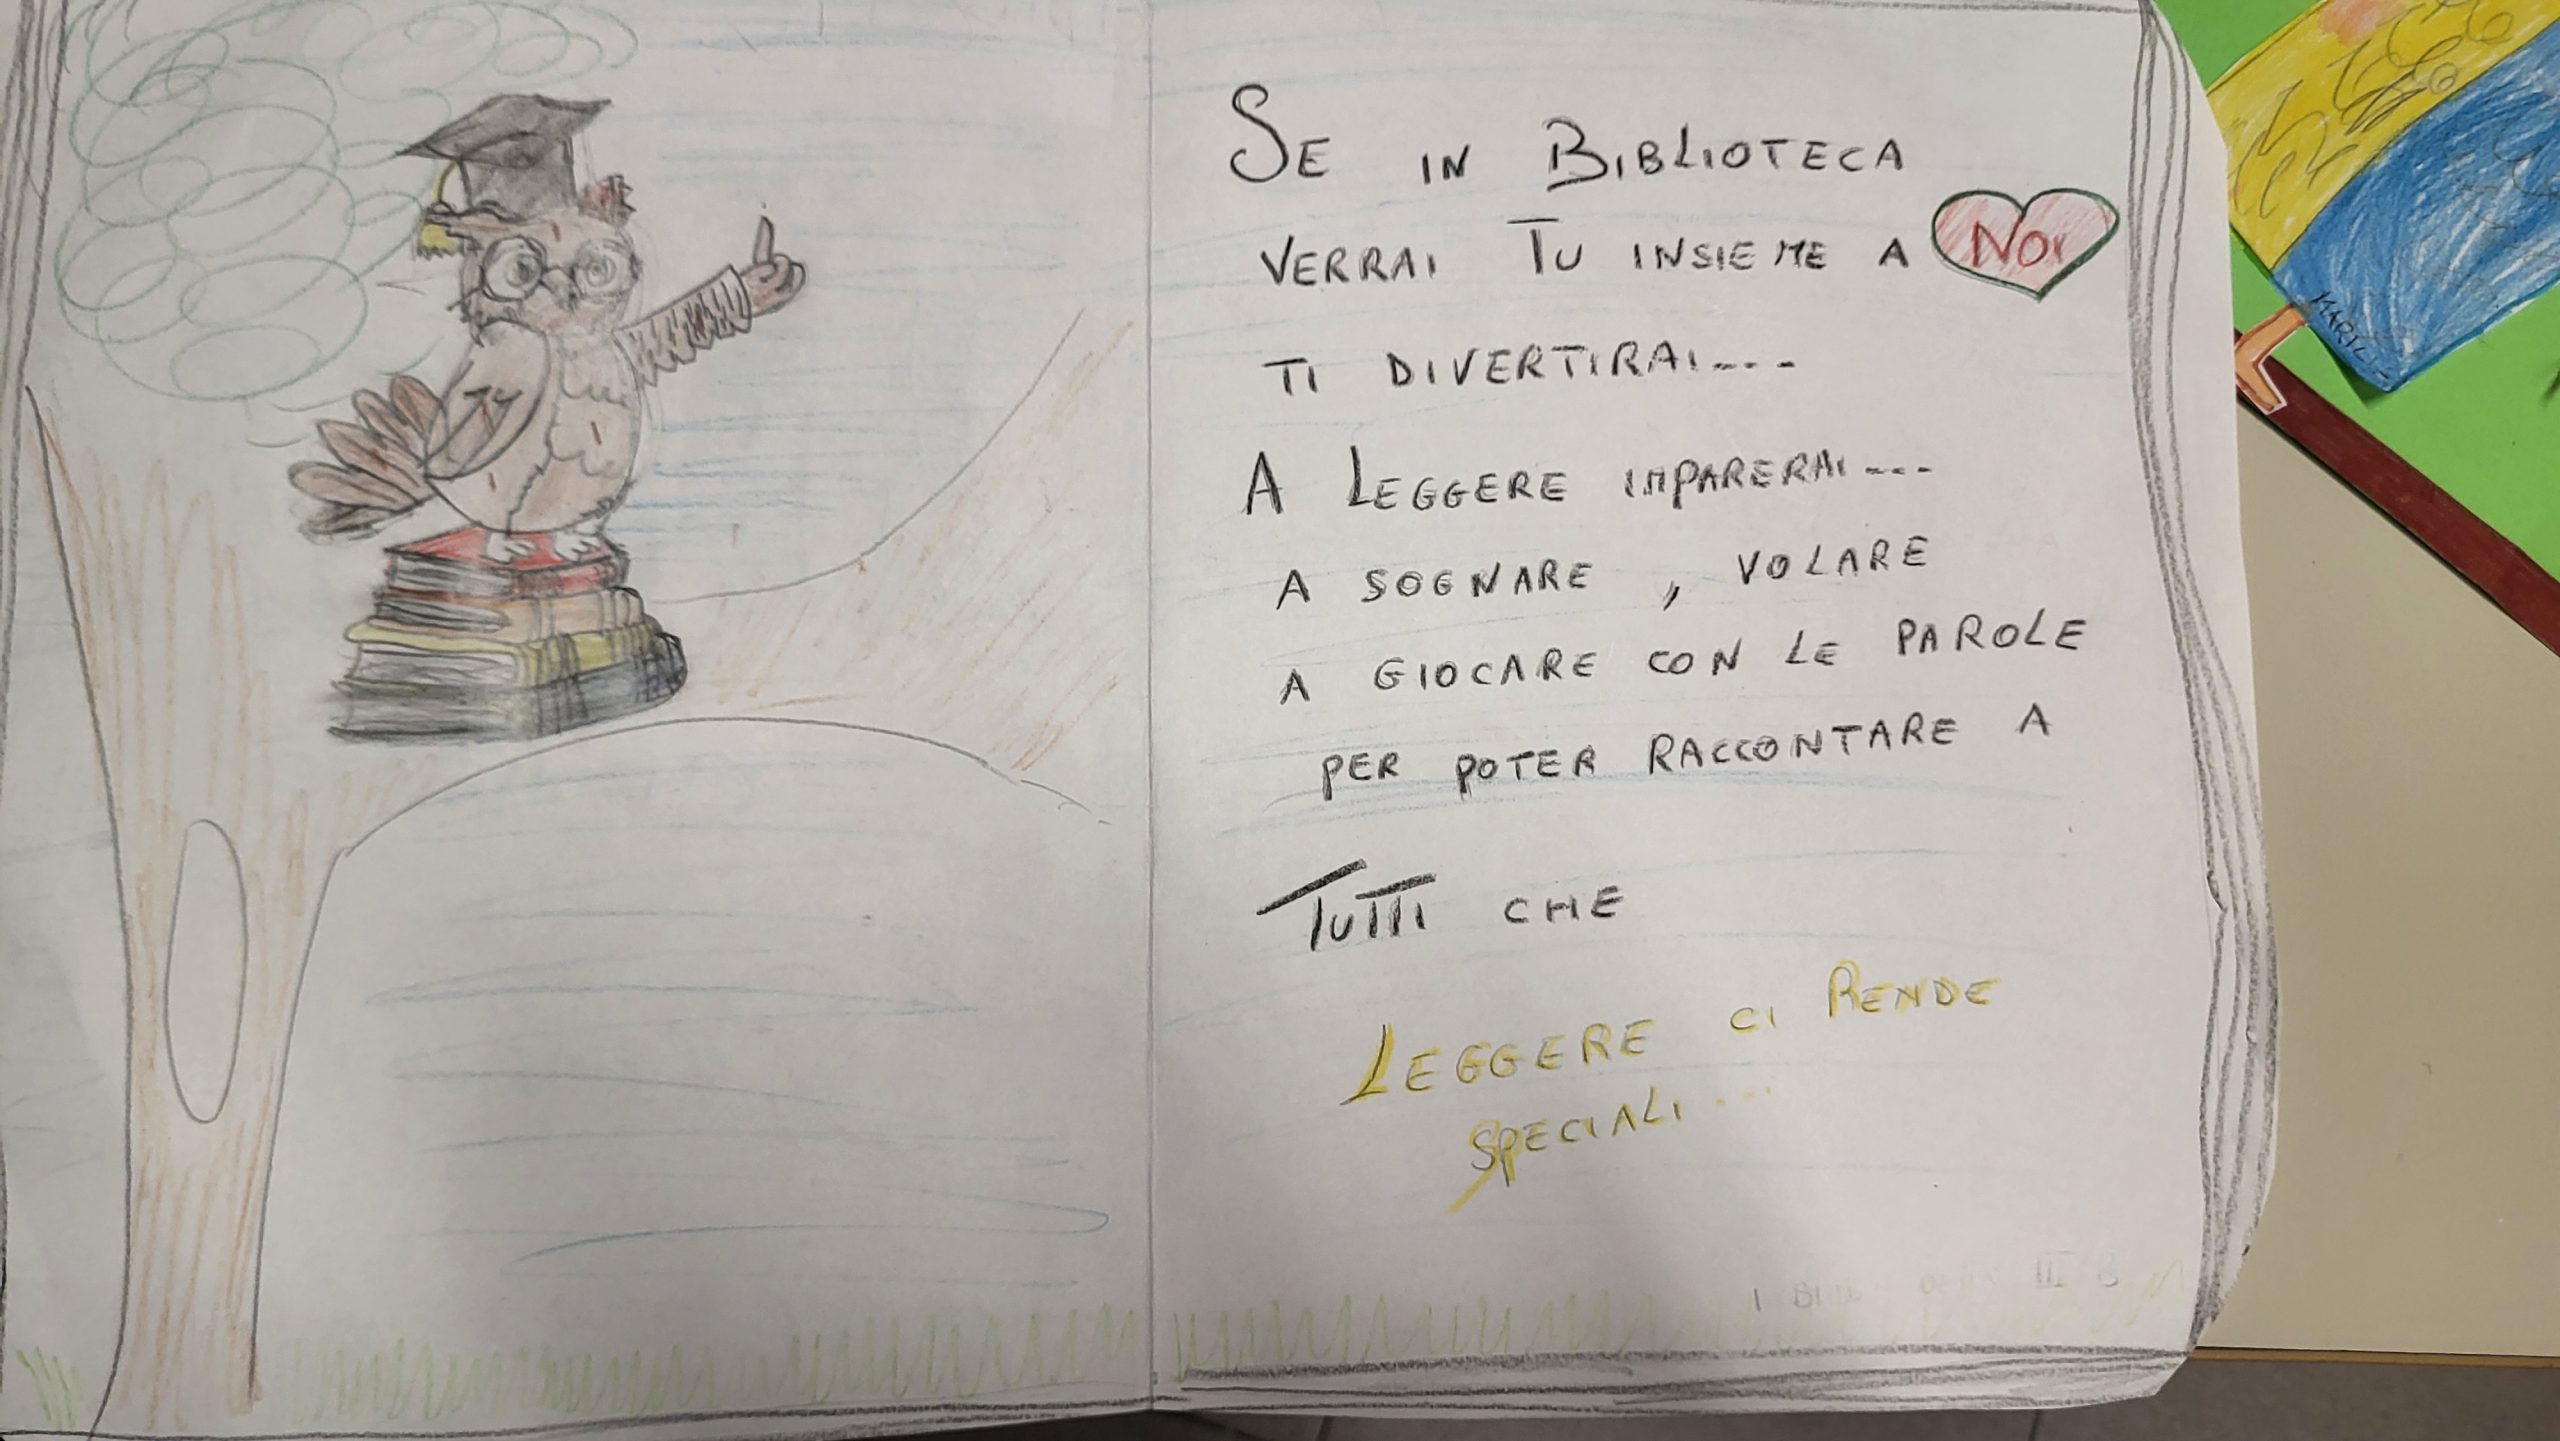 SE IN BIBLIOTECA
VERRAI TU INSIEME A NOI
TI DIVERTIRAI...
A LEGGERE IMPARERAI...
A SOGNARE, VOLARE
A GIOCARE CON LE PAROLE
PER POTER RACCONTARE A
TUTTI CHE
LEGGERE CI RENDE
SPECIALI...
III B